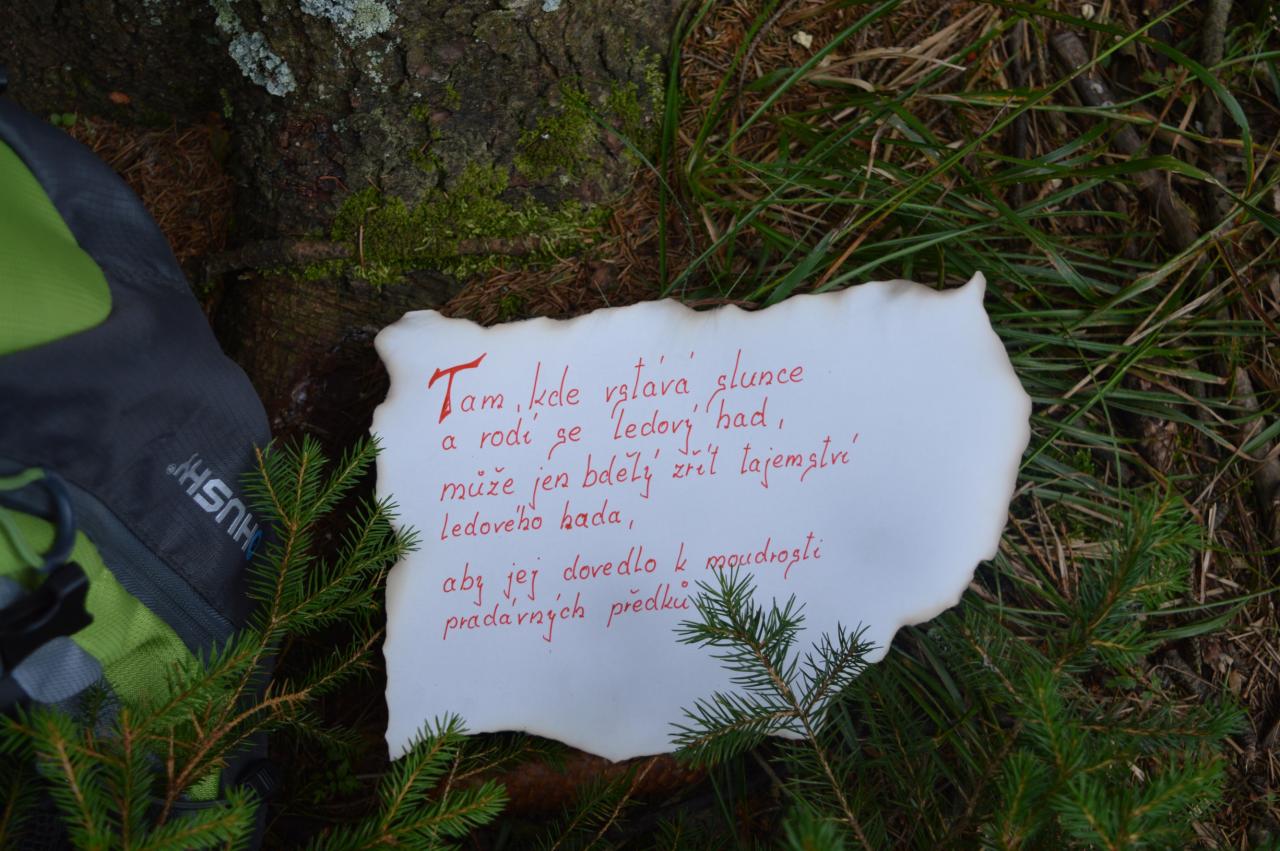 Tam, kde vstává slunce
a rodí se ledový had,
může jen bdělý zřít tajemství
ledového hada,
aby jej dovedlo k moudrosti
pradávných předků
HUSKY